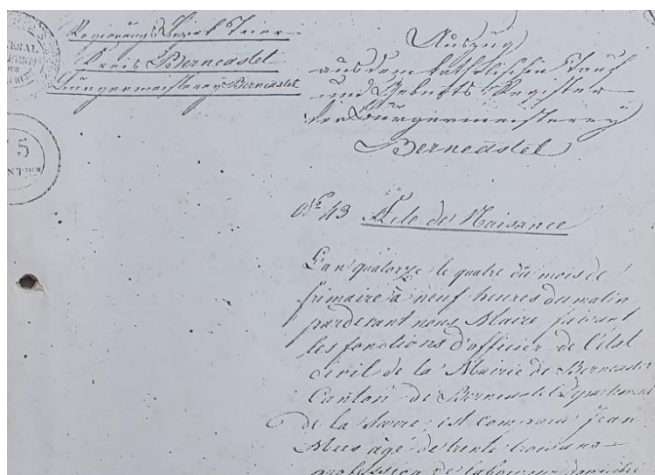 Regierungs Bezirk Trier
Kreis Berncastel
Bürgermeisterey Berncastel
5
Auszug
aus dem katholischen Tauf
und Geburts Register
der Bürgermeisterey
Berncastel
No 43 Acte de Naisance
L'an quatorze le quatre du mois de
frimaire à neuf heures du matin
pardevant nous Maire faisant
les fonctions d'officier de l'état
civil de la Mairie de Berncastel
Canton de Berncastel Département
de la Sarre, est comparu Jean
Mees agé de trente trois ans
profession de laboureur